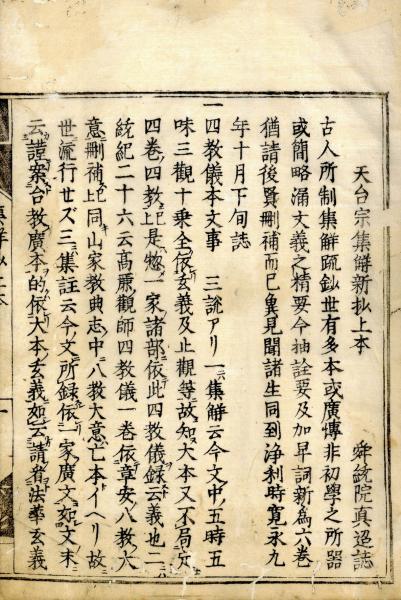 天台宗集解新抄上本　舜統院真迢誌
古人所制集解疏鈔世有多本或廣博非初學之所器
或簡略漏文義之精要今抽詮要及加早詞新為六卷
猶請後賢刪補而已兾見聞諸生同到淨刹時寛永九
年十月下旬誌
一四教儀本文事　三說アリ一集解云今文中五時五
味三觀十乗全依玄義及止觀等故知大本又不局定
四卷四教記是惣一家諸部依此四教儀録云義也二
統紀二十六云髙麗觀師四教儀一卷依章安八教大
意刪補記同山家教典志中八教大意亡本イヘリ故
世流行廿ス三集註云今文所録依一家廣文如文末
云謹案台教廣本的依大本玄義如云請省法華玄義